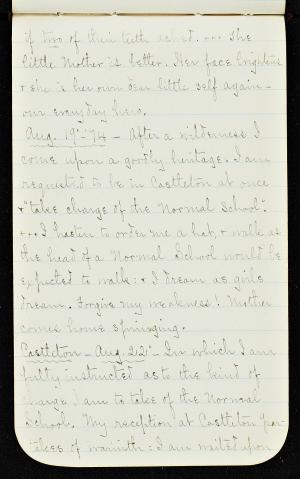 if two of their teeth ached. ... The
little Mother is better. Her face brightens
& she is her own dear little self again -
our everyday hero.
Aug. 19" '74 - After a wilderness I
come upon a goodly heritage. I am
requested to be in Castleton at once
& "take charge of the Normal School".
... I hasten to order me a hat, & walk as
the head of a Normal School would be
expected to walk: . I dream as girls
dream. Forgive my weakness! Mother
comes home springing.
Castleton - Aug. 22" - In which I am
fully instructed as to the kind of
charge I am to take of the Normal
School. My reception at Castleton par-
takes of warmth: I am waited upon